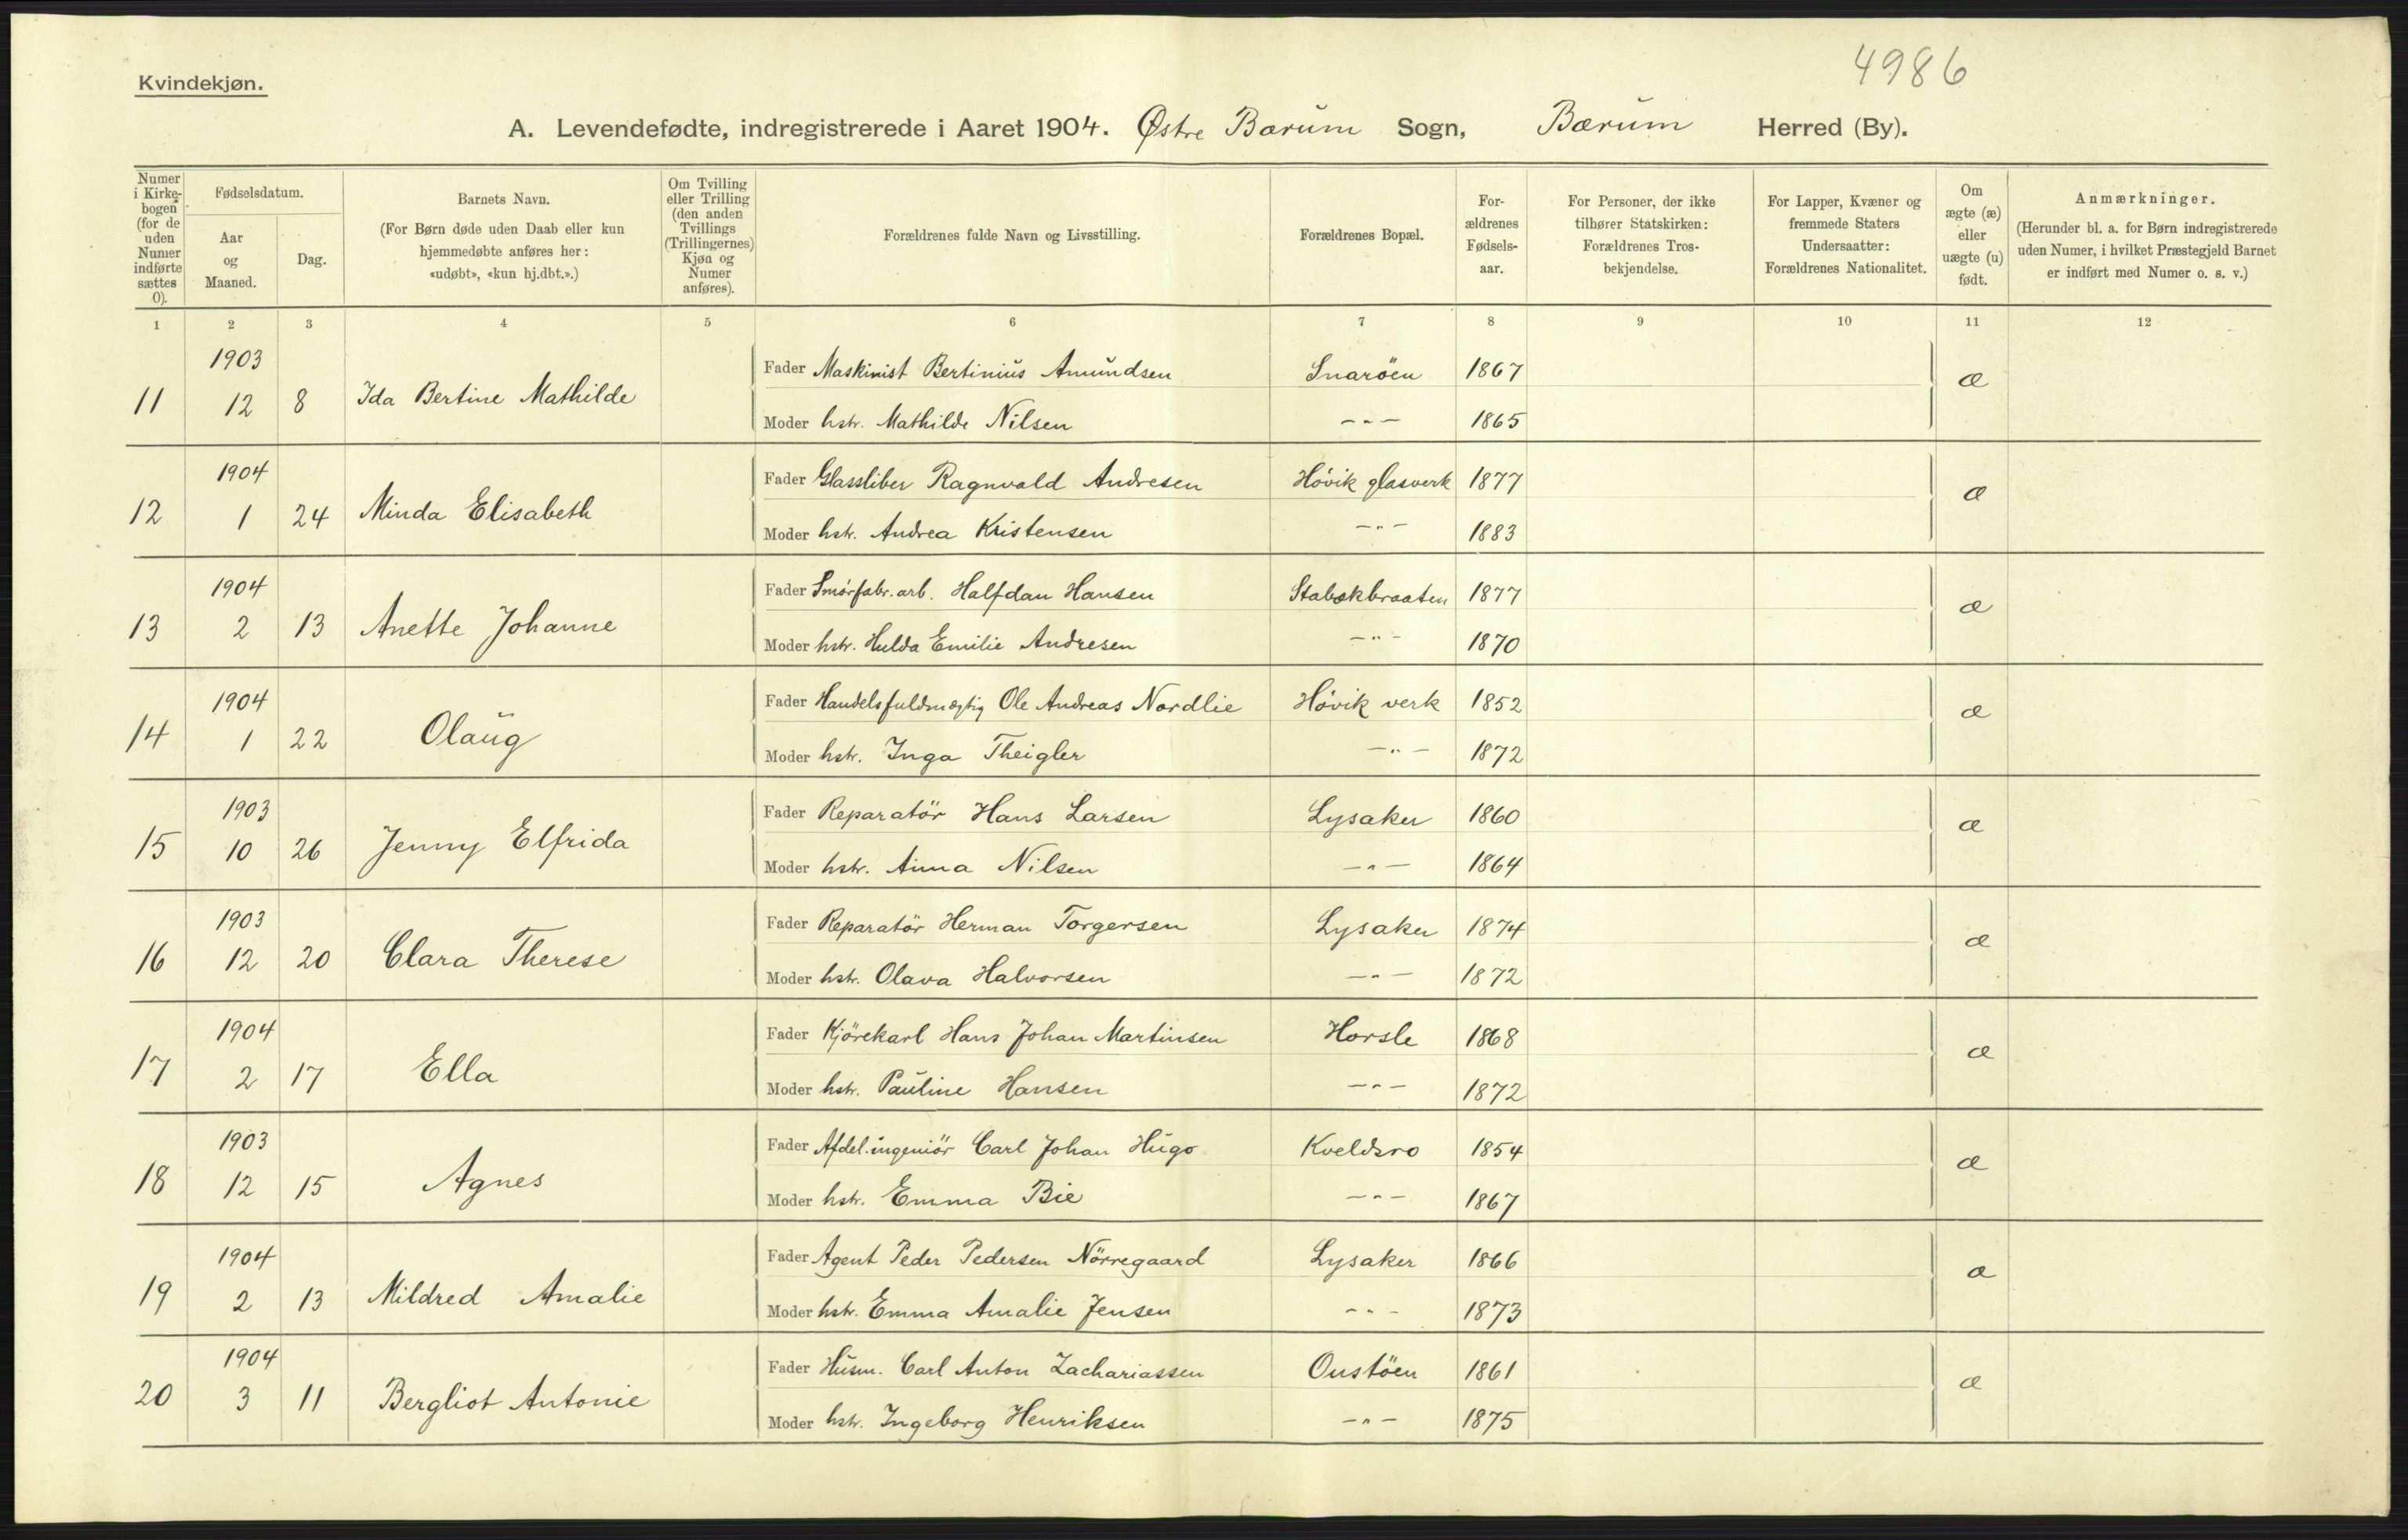 4986
Kvindekjøn.
A. Levendefødte, indregistrerede i Aaret 1904. Østre Bærum Sogn, Bærum Herred (By).
Numer i Kirke-bogen (for de uden Numer indførte sættes 0).
Fødselsdatum.
Aar og Maaned.
Dag.
Barnets Navn.
(For Børn døde uden Daab eller kun hjemmedøbte anføres her: «udøbt», «kun hj.dbt.».)
Om Tvilling eller Trilling (den anden Tvillings (Trillingernes) Kjøn og Numer anføres).
Forældrenes fulde Navn og Livsstilling.
Forældrenes Bopæl.
For-ældrenes Fødsels-aar.
For Personer, der ikke tilhører Statskirken: Forældrenes Tros-bekjendelse.
For Lapper, Kvæner og fremmede Staters Undersaatter: Forældrenes Nationalitet.
Om ægte (æ) eller uægte (u) født.
Anmærkninger.
(Herunder bl. a. for Børn indregistrerede uden Numer, i hvilket Præstegjeld Barnet er indført med Numer o. s. v.)
1 2 3 4 5 6 7 8 9 10 11 12
1903 Fader Maskinist Bertinius Amundsen Snaröen 1867
11 12 8 Ida Bertine Mathilde æ
Moder hstr. Mathilde Nilsen -"- 1865
1904 Fader Glassliber Ragnvald Andresen Hövik glasverk 1877
12 1 24 Minda Elisabeth æ
Moder hstr. Andrea Kristensen -"- 1883
1904 Fader Smörfabr. arb. Halfdan Hansen Stabækbraaten 1877
13 2 13 Anette Johanne æ
Moder hstr. Hulda Emilie Andresen -"- 1870
1904 Fader Handelsfuldmægtig Ole Andreas Nordlie Hövik verk 1852
14 1 22 Olaug æ
Moder hstr. Inga Theigler -"- 1872
1903 Fader Reparatör Hans Larsen Lysaker 1860
15 10 26 Jenny Elfrida æ
Moder hstr. Anna Nilsen -"- 1864
1903 Fader Reparatör Herman Torgersen Lysaker 1874
16 12 20 Clara Therese æ
Moder hstr. Olava Halvorsen -"- 1872
1904 Fader Kjörekarl Hans Johan Martinsen Horsle 1868
17 2 17 Ella æ
Moder hstr. Pauline Hansen -"- 1872
1903 Fader Afdel.ingeniör Carl Johan Hugo Kveldsro 1854
18 12 15 Agnes æ
Moder hstr. Emma Bie -"- 1867
1904 Fader Agent Peder Pedersen Nörregaard Lysaker 1866
19 2 13 Mildred Amalie æ
Moder hstr. Emma Amalie Jensen -"- 1873
1904 Fader Husm. Carl Anton Zachariassen Oustöen 1861
20 3 11 Bergliot Antonie æ
Moder hstr. Ingeborg Henriksen -"- 1875